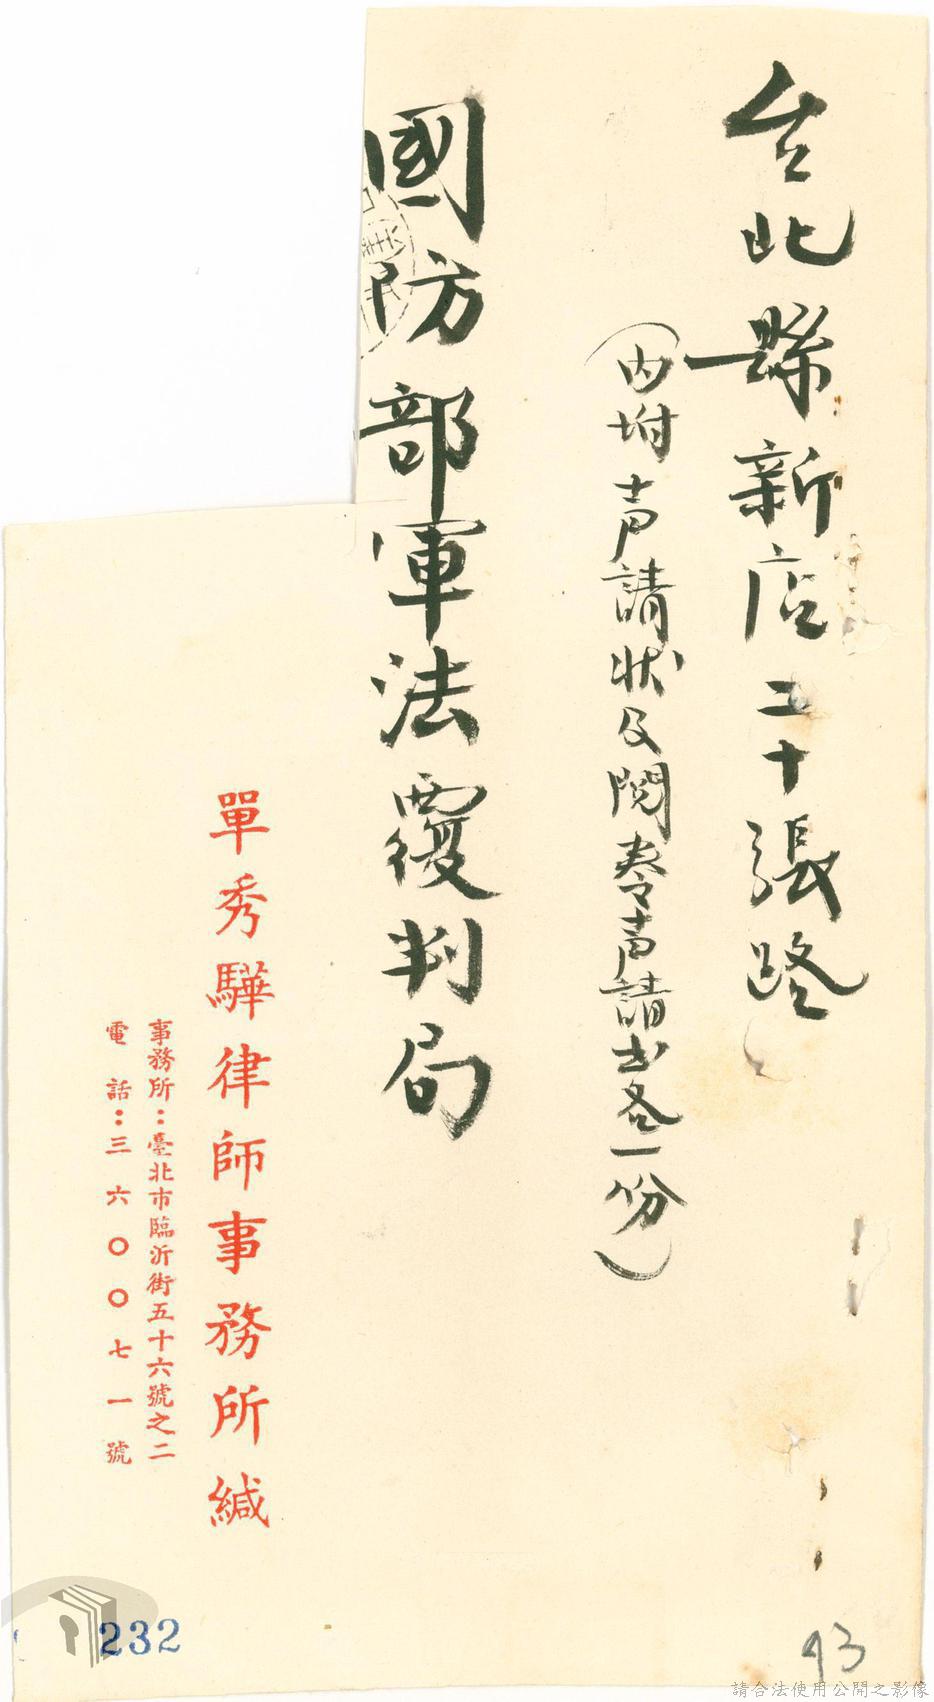 台北縣新店二十張路
（內附声請狀及閱卷声請书各一份）
國防部軍法覆判局
單秀驊律師事務所緘
事務所：臺北市臨沂街五十六號之二
電話：三六〇〇七一號
232
93
請合法使用公開之影像